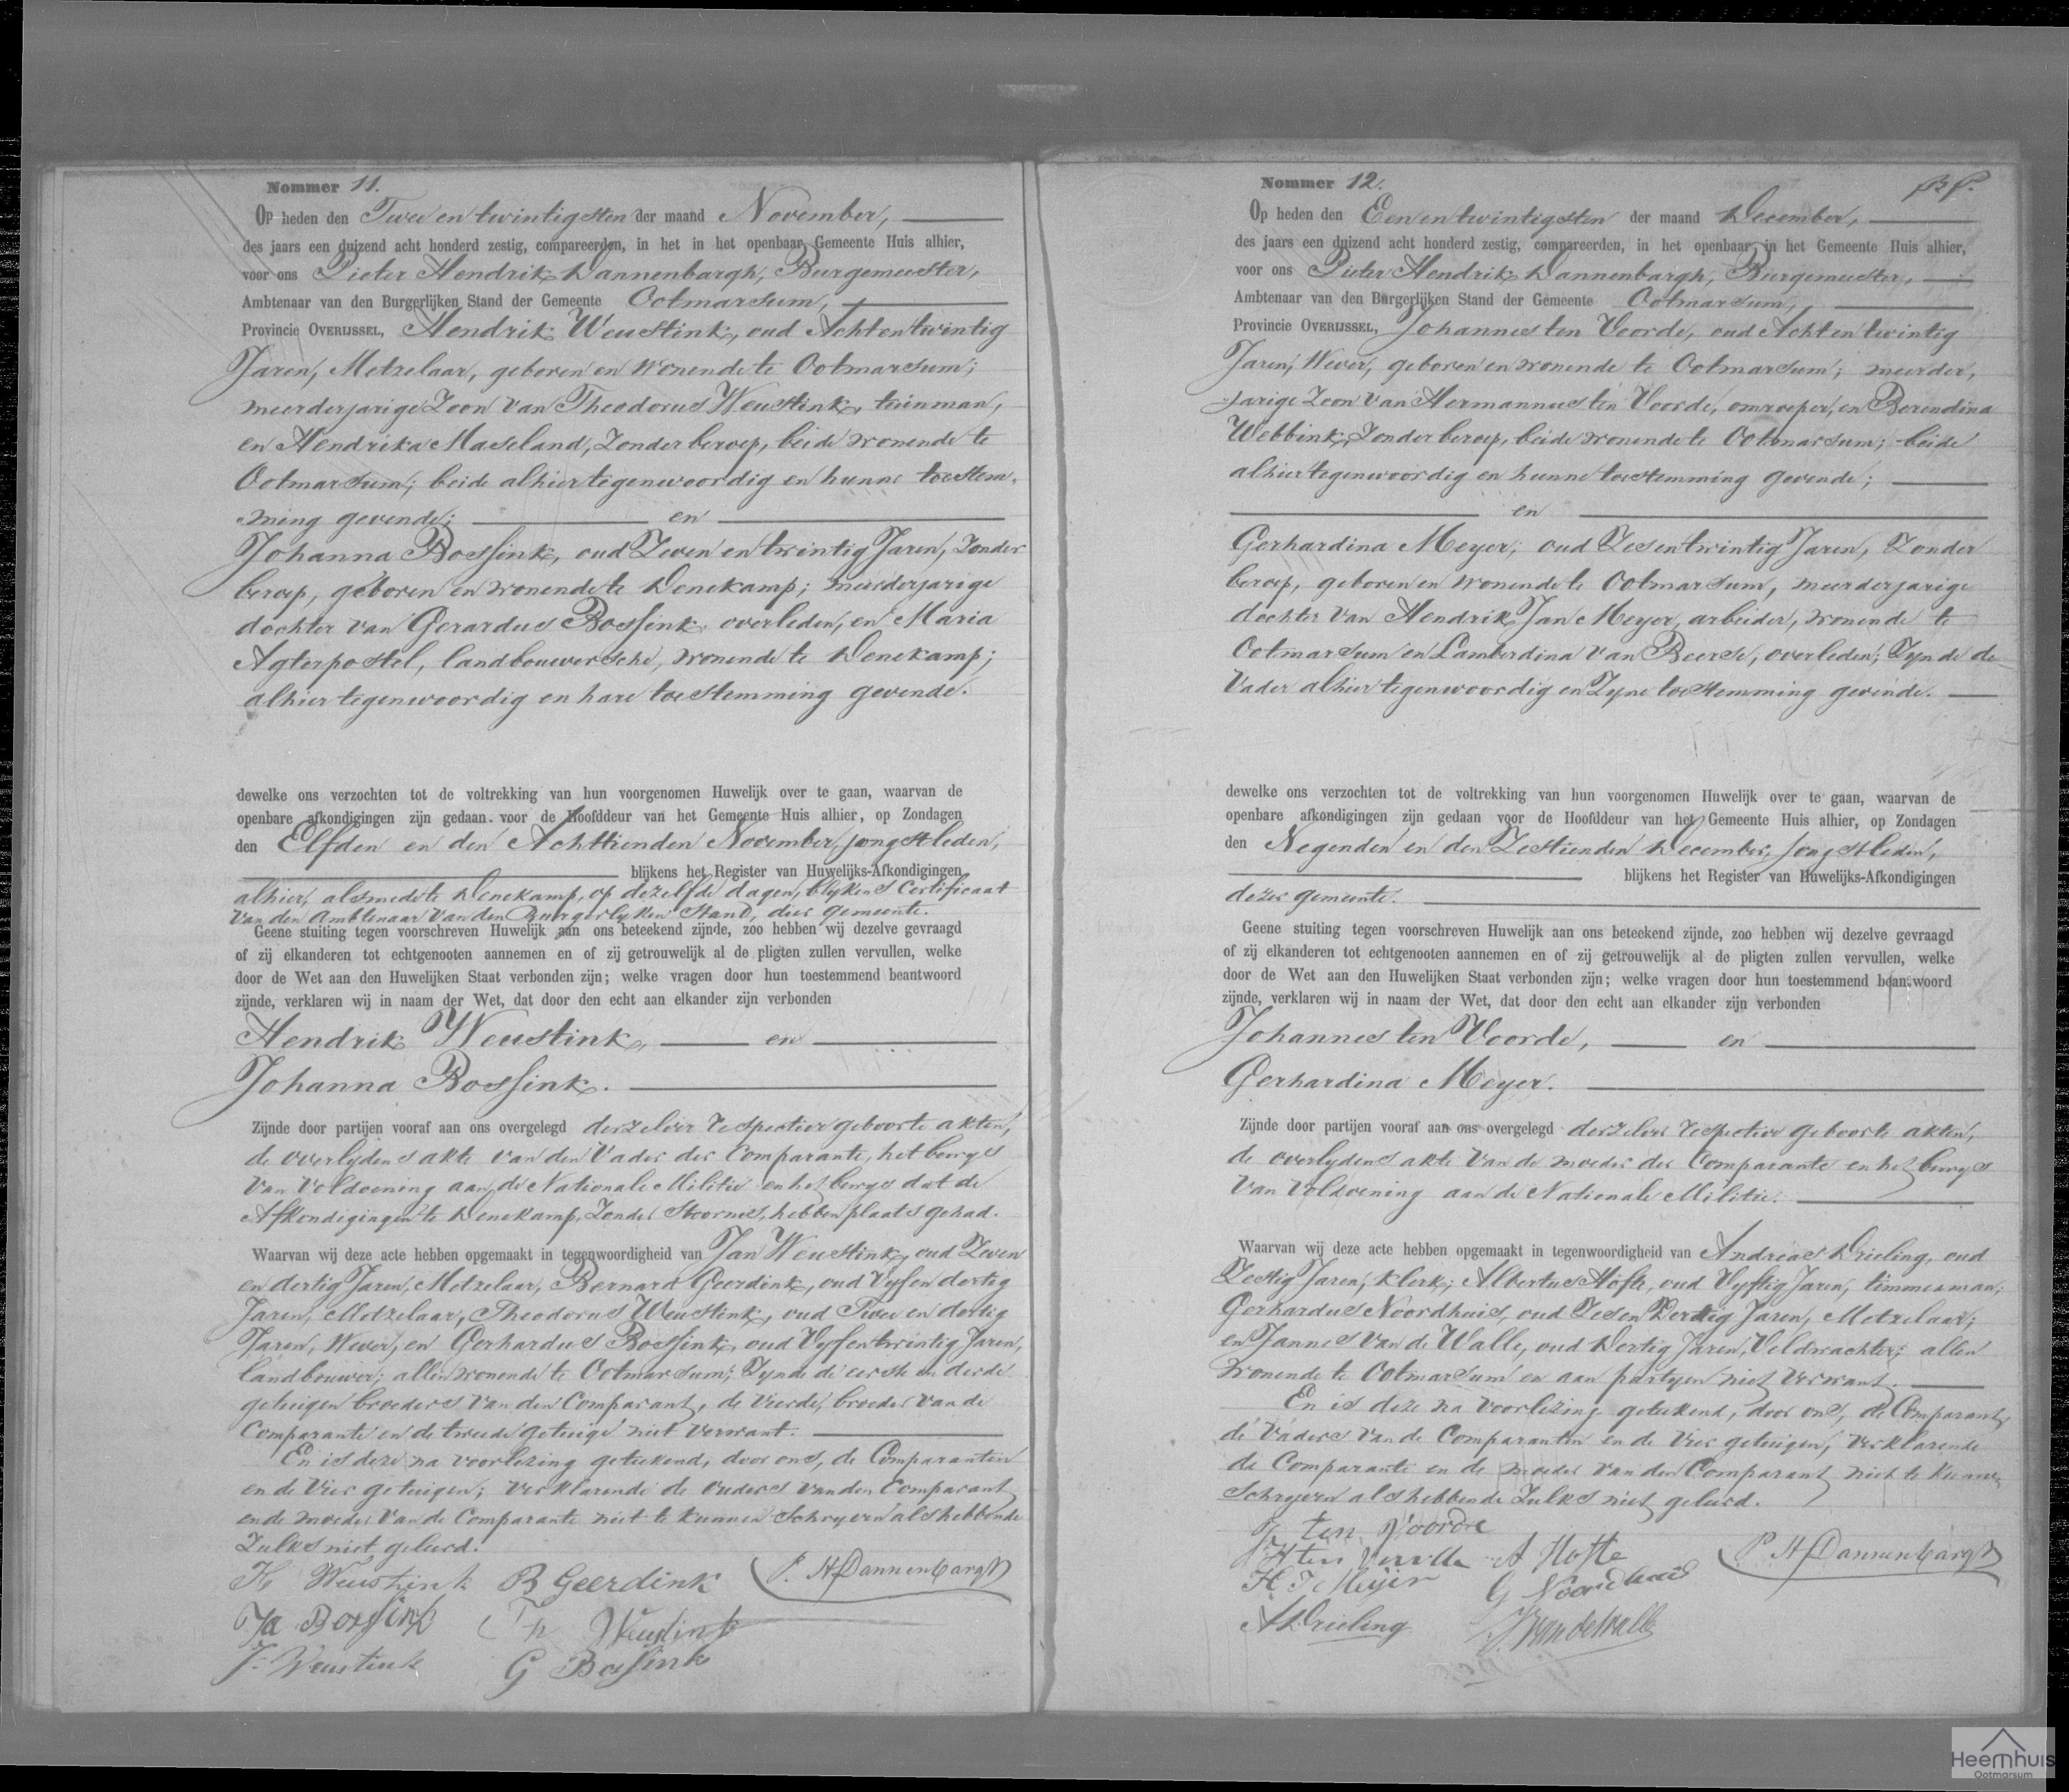 Nommer 11.
Op heden den Twee en twintigsten der maand November,
des jaars een duizend acht honderd zestig, compareerden, in het in het openbaar Gemeente Huis alhier,
voor ons Pieter Hendrik Dannenbargh, Burgemeester,
Ambtenaar van den Burgerlijken Stand der Gemeente Ootmarsum,
Provincie OVERIJSSEL, Hendrik Weustink, oud Achtentwintig
Jaren, Metzelaar, geboren en wonende te Ootmarsum;
meerderjarige Zoon van Theodorus Weustink, tuinman,
en Hendrika Maseland, Zonder beroep, beide wonende te
Ootmarsum; beide alhier tegenwoordig en hunne toestem-
ming gevende; en
Johanna Bossink, oud Zeven en twintig Jaren, Zonder
beroep, geboren en wonende te Denekamp; meerderjarige
dochter van Gerardus Bossink overleden, en Maria
Agterpostel, landbouwersche, wonende te Denekamp;
alhier tegenwoordig en hare toestemming gevende.
dewelke ons verzochten tot de voltrekking van hun voorgenomen Huwelijk over te gaan, waarvan de
openbare afkondigingen zijn gedaan voor de Hoofddeur van het Gemeente Huis alhier, op Zondagen
den Elfden en den Achttienden November jongstleden,
blijkens het Register van Huwelijks-Afkondigingen
alhier, alsmede te Denekamp, op dezelfde dagen, blykens Certificaat
van den Ambtenaar van den Burgerlyken Stand, dier gemeente.
Geene stuiting tegen voorschreven Huwelijk aan ons beteekend zijnde, zoo hebben wij dezelve gevraagd
of zij elkanderen tot echtgenooten aannemen en of zij getrouwelijk al de pligten zullen vervullen, welke
door de Wet aan den Huwelijken Staat verbonden zijn; welke vragen door hun toestemmend beantwoord
zijnde, verklaren wij in naam der Wet, dat door den echt aan elkander zijn verbonden
Hendrik Weustink, en
Johanna Bossink.
Zijnde door partijen vooraf aan ons overgelegd derzelver respective geboorte akten,
de overlydensakte van den Vader der Comparante, het bewys
van voldoening aan de Nationale Militie en het bewys dat de
Afkondigingen te Denekamp, Zonder Stoornis, hebben plaats gehad.
Waarvan wij deze acte hebben opgemaakt in tegenwoordigheid van Jan Weustink, oud Zeven
en dertig Jaren, Metzelaar, Bernard Geerdink, oud Vyfen dertig
Jaren, Metzelaar, Theodorus Weustink, oud Twee en dertig
Jaren, Wever, en Gerhardus Bossink, oud Vyfentwintig Jaren,
landbouwer; allen wonende te Ootmarsum; Zynde de eerste en derde
getuigen broeders van den Comparant, de vierde, broeder van de
Comparante en de tweede getuige niet verwant.
En is deze na voorlezing geteekend, door ons, de Comparanten
en de vier getuigen; verklarende de ouders van den Comparant
en de moeder van de Comparante niet te kunnen schryven als hebbende
Zulks niet geleerd.
H Weustink B Geerdink P. H Dannenbargh
Ja Bossink Th Weustink
J. Weustink G Bossink
Nommer 12.
Op heden den Een en twintigsten der maand December,
des jaars een duizend acht honderd zestig, compareerden, in het openbaar in het Gemeente Huis alhier,
voor ons Pieter Hendrik Dannenbargh, Burgemeester,
Ambtenaar van den Burgerlijken Stand der Gemeente Ootmarsum,
Provincie OVERIJSSEL, Johannes ten Voorde, oud Achtentwintig
Jaren, Wever, geboren en wonende te Ootmarsum; meerder,
jarige Zoon van Hermannus ten Voorde, omroeper, en Berendina
Webbink, Zonder beroep, beide wonende te Ootmarsum; beide
alhier tegenwoordig en hunne toestemming gevende;
en
Gerhardina Meyer, oud Zesentwintig Jaren, Zonder
beroep, geboren en wonende te Ootmarsum, meerderjarige
dochter van Hendrik Jan Meyer, arbeider, wonende te
Ootmarsum en Lamberdina van Beerse, overleden; Zynde de
Vader alhier tegenwoordig en Zyne toestemming gevende.
dewelke ons verzochten tot de voltrekking van hun voorgenomen Huwelijk over te gaan, waarvan de
openbare afkondigingen zijn gedaan voor de Hoofddeur van het Gemeente Huis alhier, op Zondagen
den Negenden en den Zestienden December, jongstleden,
blijkens het Register van Huwelijks-Afkondigingen
dezer gemeente.
Geene stuiting tegen voorschreven Huwelijk aan ons beteekend zijnde, zoo hebben wij dezelve gevraagd
of zij elkanderen tot echtgenooten aannemen en of zij getrouwelijk al de pligten zullen vervullen, welke
door de Wet aan den Huwelijken Staat verbonden zijn; welke vragen door hun toestemmend beantwoord
zijnde, verklaren wij in naam der Wet, dat door den echt aan elkander zijn verbonden
Johannes ten Voorde, en
Gerhardina Meyer.
Zijnde door partijen vooraf aan ons overgelegd derzelver respective geboorte akten,
de overlydensakte van de moeder der Comparante en het bewys
van voldoening aan de Nationale Militie.
Waarvan wij deze acte hebben opgemaakt in tegenwoordigheid van Andreas Drieling, oud
Zestig Jaren, klerk; Albertus Hofte, oud Vyftig Jaren, timmerman;
Gerhardus Noordhuis, oud Zesen Dertig Jaren, Metzelaar;
en Jannes van de Walle, oud Dertig Jaren, Veldwachter; allen
wonende te Ootmarsum en aan partyen niet verwant.
En is deze na voorlezing geteekend, door ons, de Comparant,
de vaders van de Comparanten en de vier getuigen, verklarende
de Comparante en de moeder van den Comparant niet te kunnen
schryven als hebbende Zulks niet geleerd.
J ten Voorde
H ten Voorde A Hofte P H Dannenbargh
H J Meijer G Noordhuis
A Drieling J. van de Walle
Heemhuis
Ootmarsum